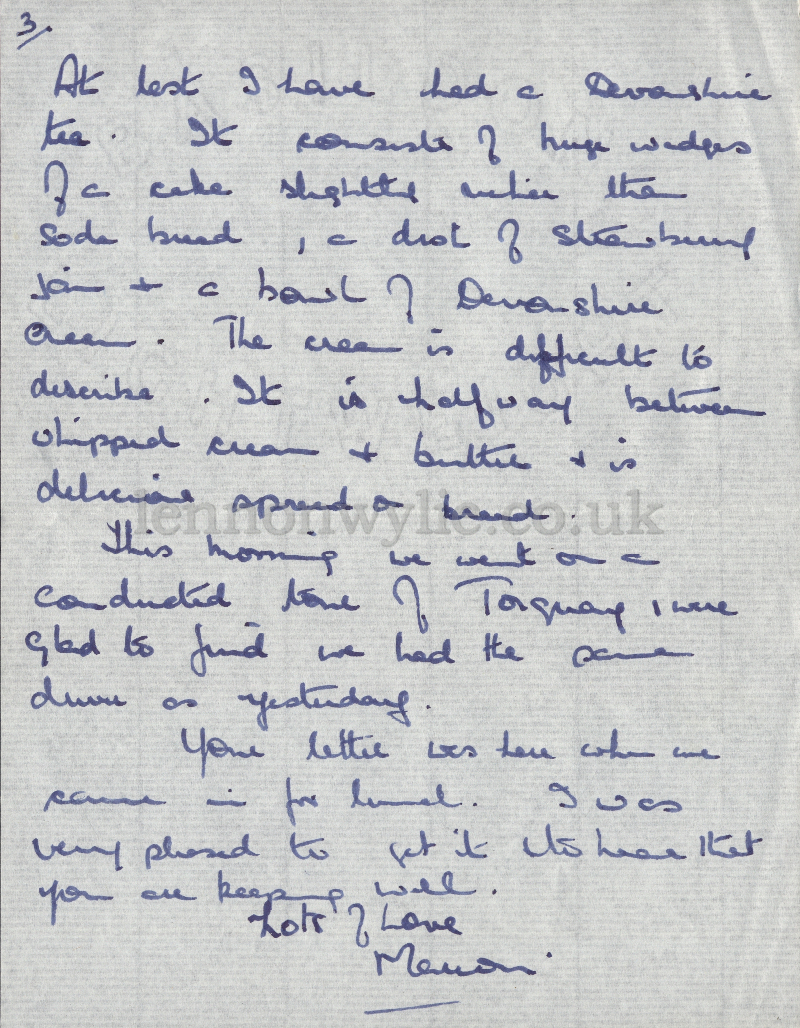 3/.
At last I have had a Devonshire
tea. It consists of huge wedges
of a cake slightly richer than
soda bread, a dish of strawberry
jam + a bowl of Devonshire
cream. The cream is difficult to
describe. It is halfway between
whipped cream + butter + is
delicious spread on bread.
lennonwylie.co.uk
This morning we went on a
conducted tour of Torquay, were
glad to find we had the same
driver as yesterday.
Your letter was here when we
came in for lunch. I was
very pleased to get it & to hear that
you are keeping well.
Lots of Love
Marion